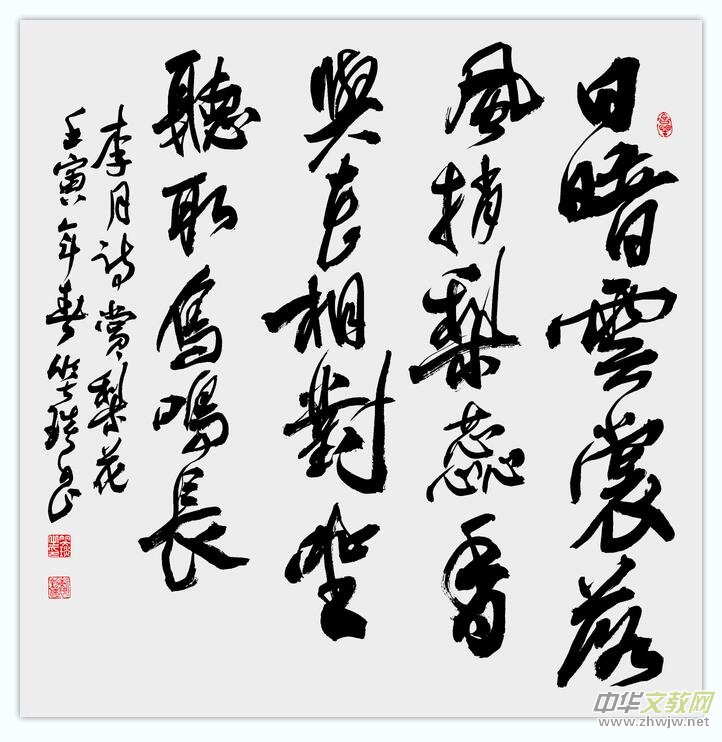 日暗雲裳落
風捎梨蕊香
與君相對坐
聽取鳥鳴長
李月詩賞梨花
壬寅年春
中华文教网
www.zhwjw.net